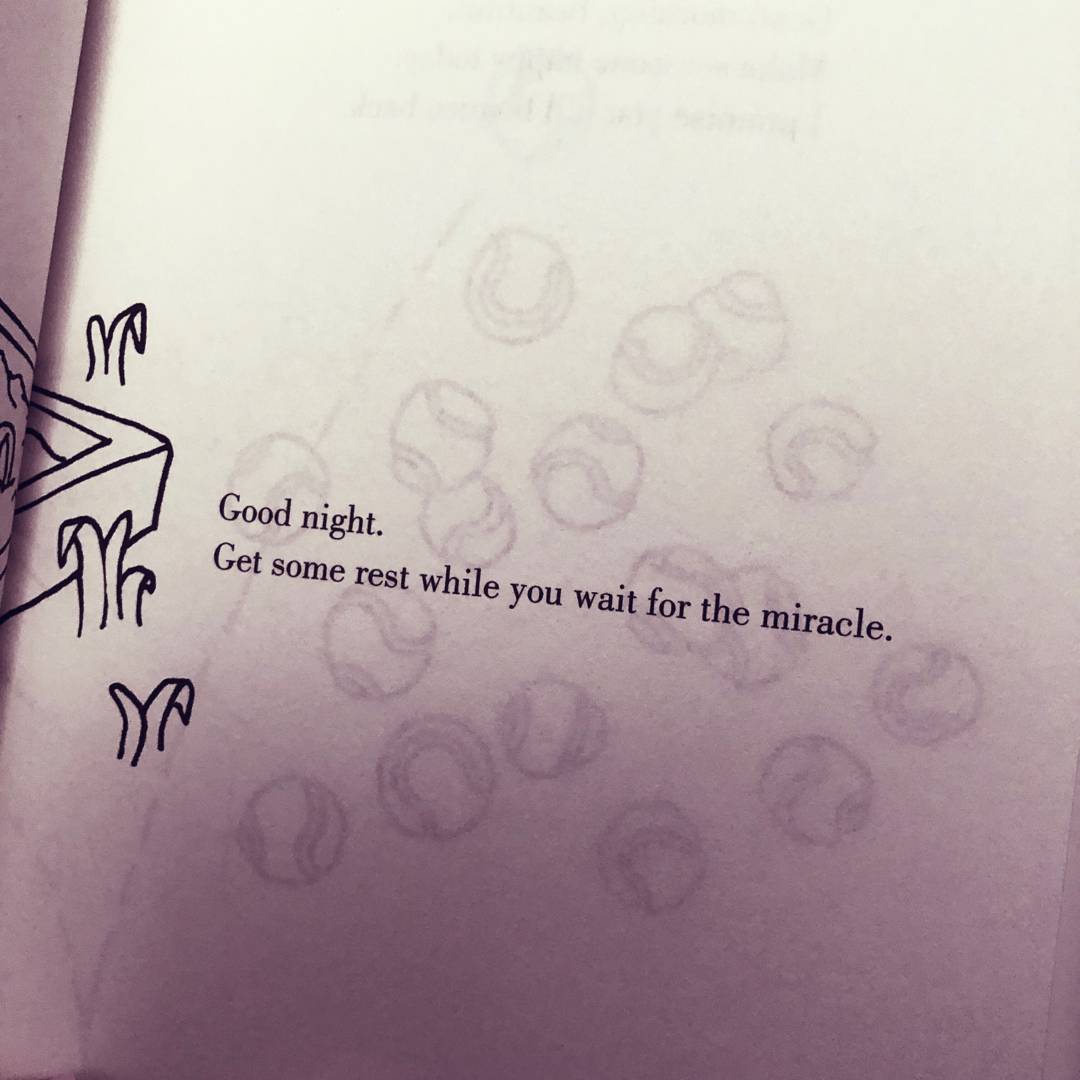 Good night.
Get some rest while you wait for the miracle.